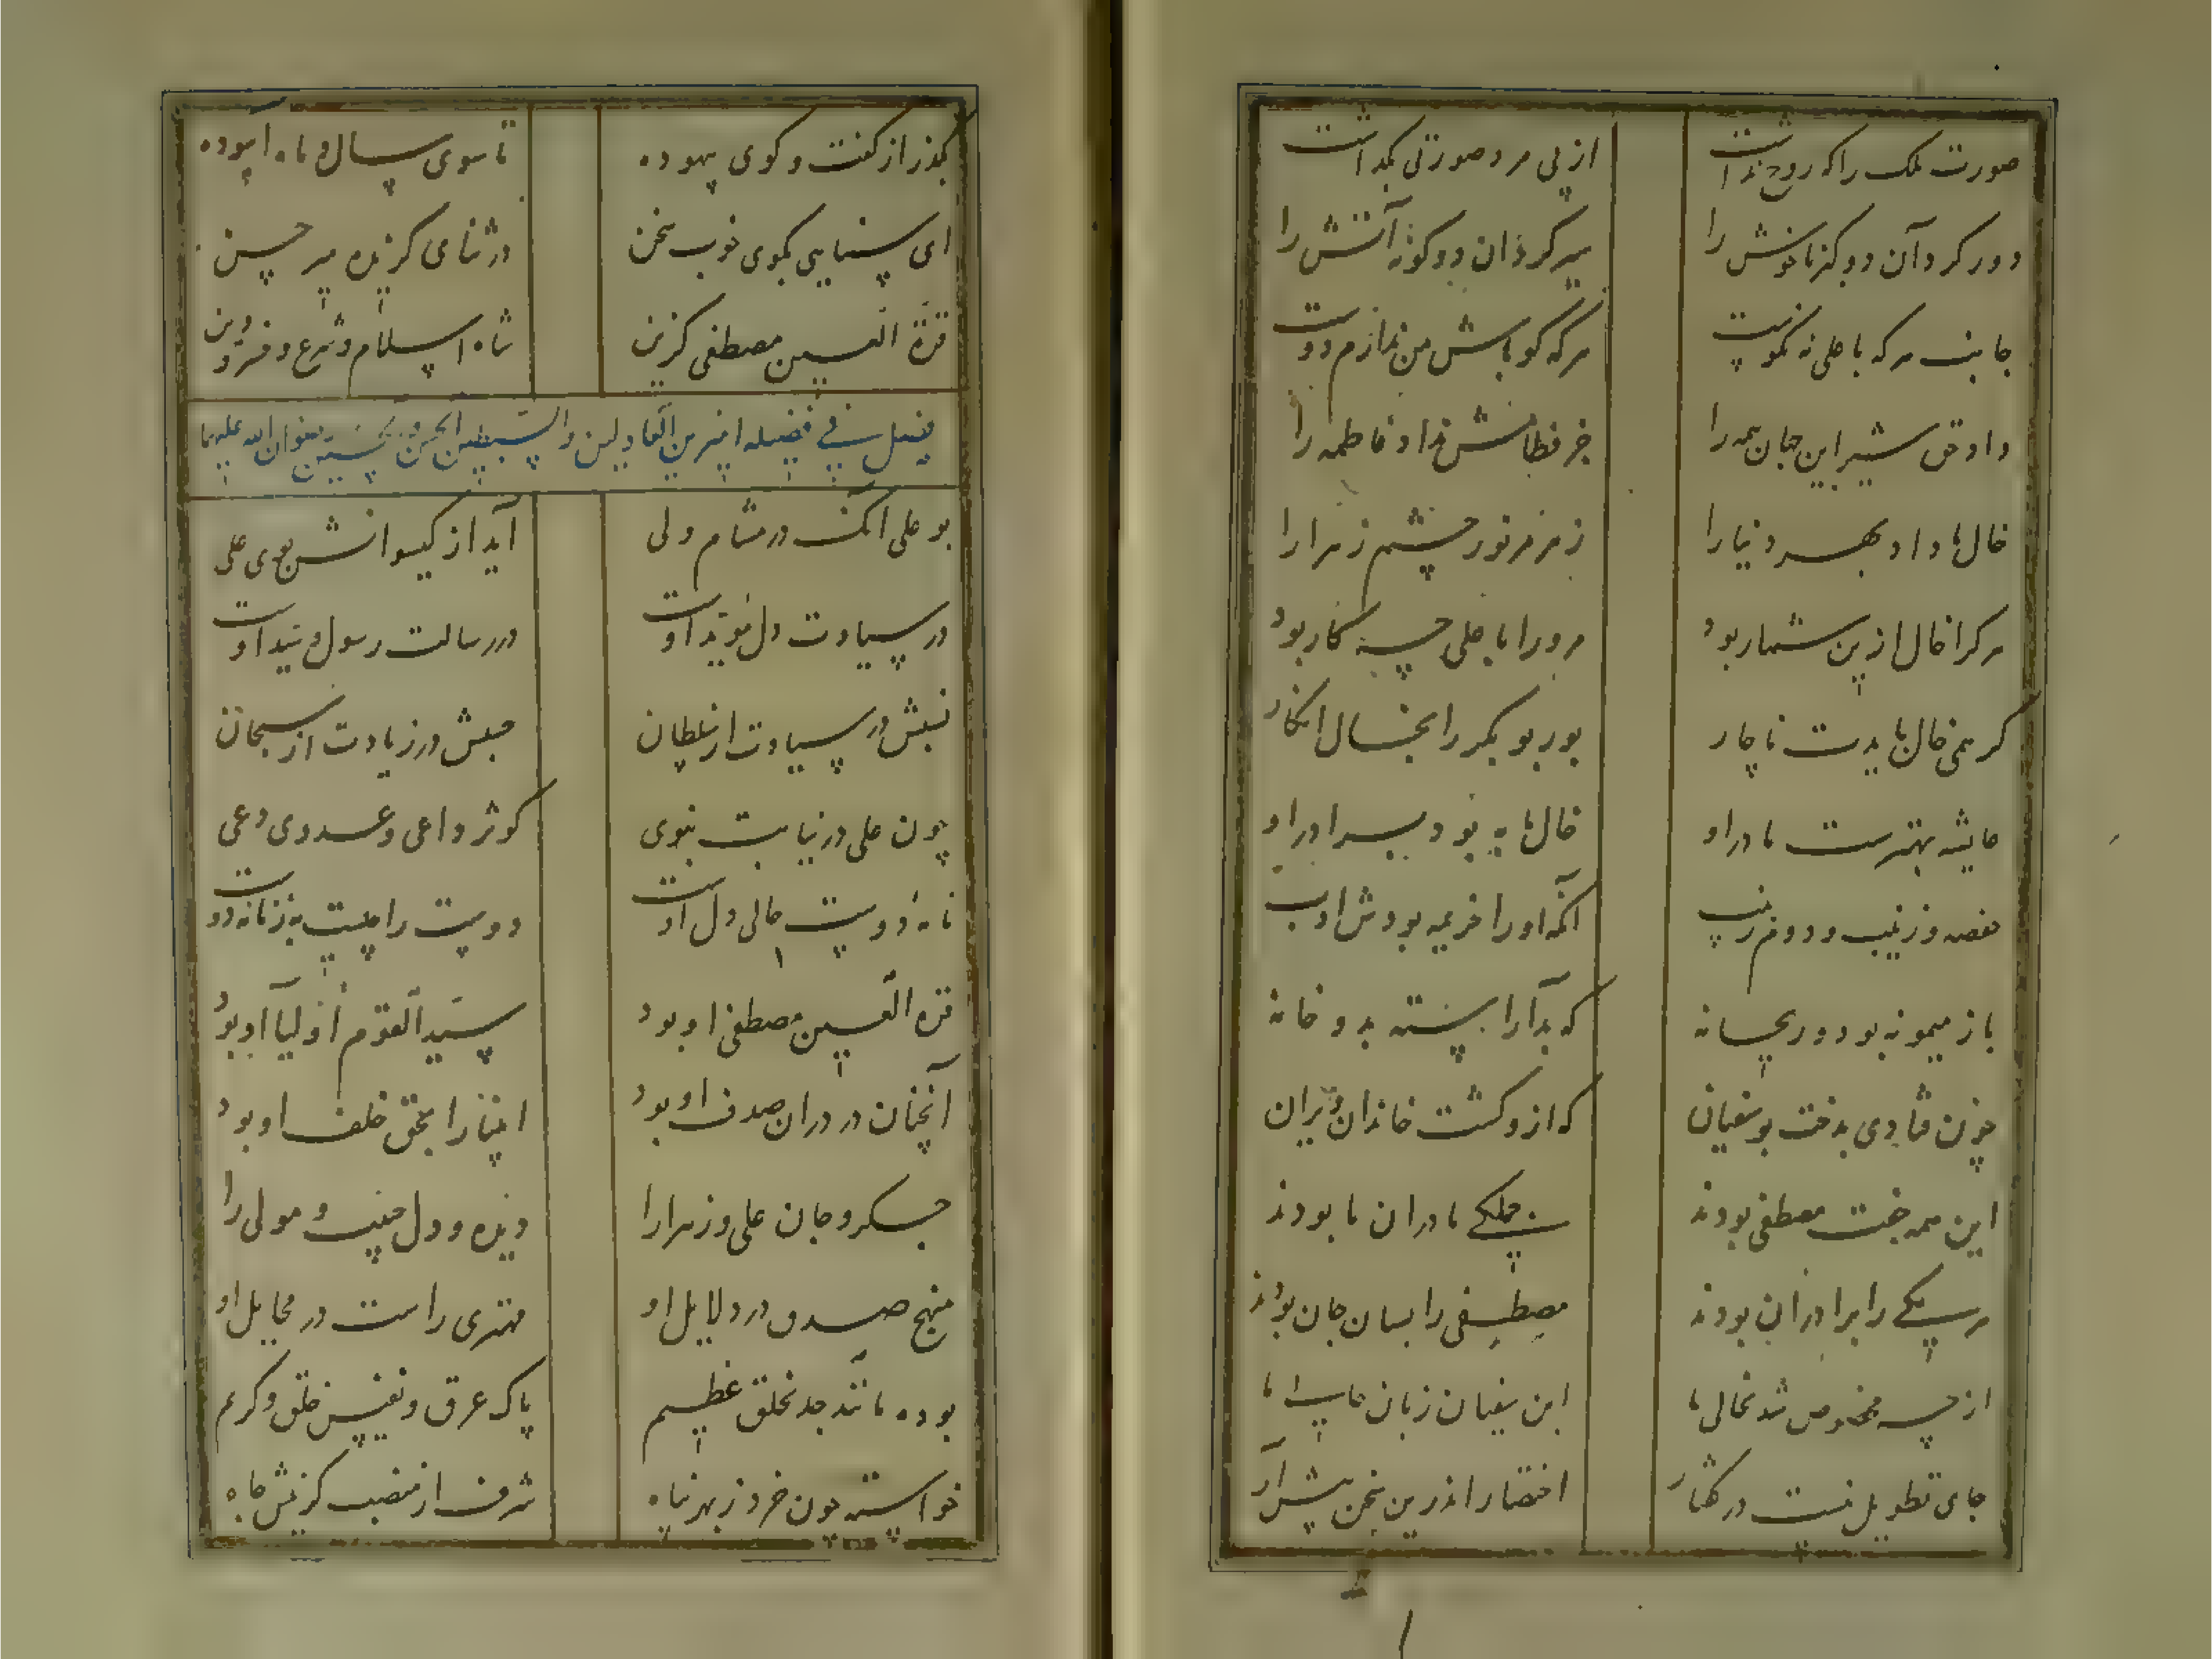 صورت ملک را که روح نداشت از پی مرد صورتی بگذاشت
دور کرد آن دو کنز ناخوش را سیر کرد آن دو گونه آتش را
جانب هر که با علی نه نکوست هر که گو باش من ندارم دوست
داد حق شیر این جهان همه را جز فطامش نداد فاطمه را
خال ما داد بهر دنیا را زهر مر نور چشم زهرا را
هر کرا خال ازین شمار بود مرورا با علی چه کار بود
گر همی خال بایدت ناچار پور بوبکر را بخال انگار
عایشه بهترست مادر او خال ما به بود برادر او
حفصه و زینب و دوم زینب آنکه او را خزیمه بودش اب
باز میمونه بود و ریحانه که بد آراسته بدو خانه
چون فتادی بدخت بوسفیان که ازو گشت خاندان ویران
این همه جفت مصطفی بودند نه همگی مادران ما بودند
هر یکی را برادران بودند مصطفی را بسان جان بودند
از چه مخصوص شد بخالی ما ابن سفیان زبان ما
جای تطویل نیست در گفتار اختصار اندرین سخن پیش آر
بگذر از گفت و گوی بیهوده تا سوی سال و ماه آسوده
ای سنایی بگوی خوب سخن در ثنای گزیده میر حسن
قرة العین مصطفی گزین شاه اسلام و شرع و دین
فصل فی فضیله امیرین العادلین والسبطین الحسن و الحسین رضوان الله علیهما
بوعلی آنکه در مشام ولی آید از گیسوانش بوی علی
در سیادت دل مؤید اوست در رسالت رسول و سید اوست
نسبش در سیادت از سلطان حسبش در زیادت از سبحان
چون علی در نیابت نبوی کوثر داعی و عدوی دعی
نامهٔ دوست حالی دل اوست دوست را چیست به ز نامه دوست
قرة العین مصطفی او بود سید القوم اولیا او بود
آنچنان در در آن صدف او بود انبیا را بحق خلف او بود
جگر و جان علی و زهرا را دیده و دل حبیب و مولی را
منهج صدق در دلایل او مهتری راست در مخایل او
بوده مانند جد بخلق عظیم پاک عرق و نفیس خلق و کریم
خواسته چون خرد ز بهر پناه شرف از منصب گزینش جاه